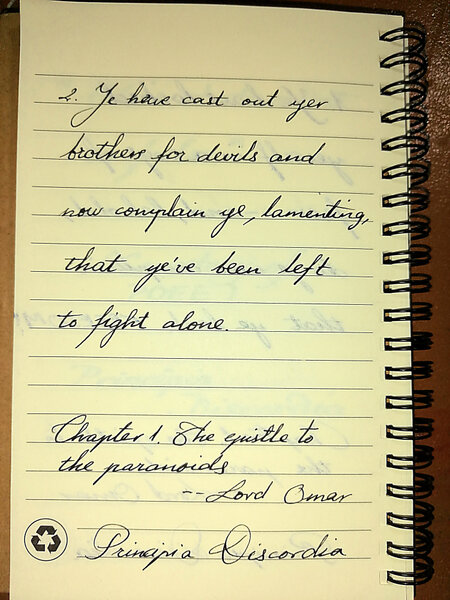 2. Ye have cast out yer
brothers for devils and
now complain ye, lamenting,
that ye've been left
to fight alone.
Chapter 1. The epistle to
the paranoids
--Lord Omar
Principia Discordia